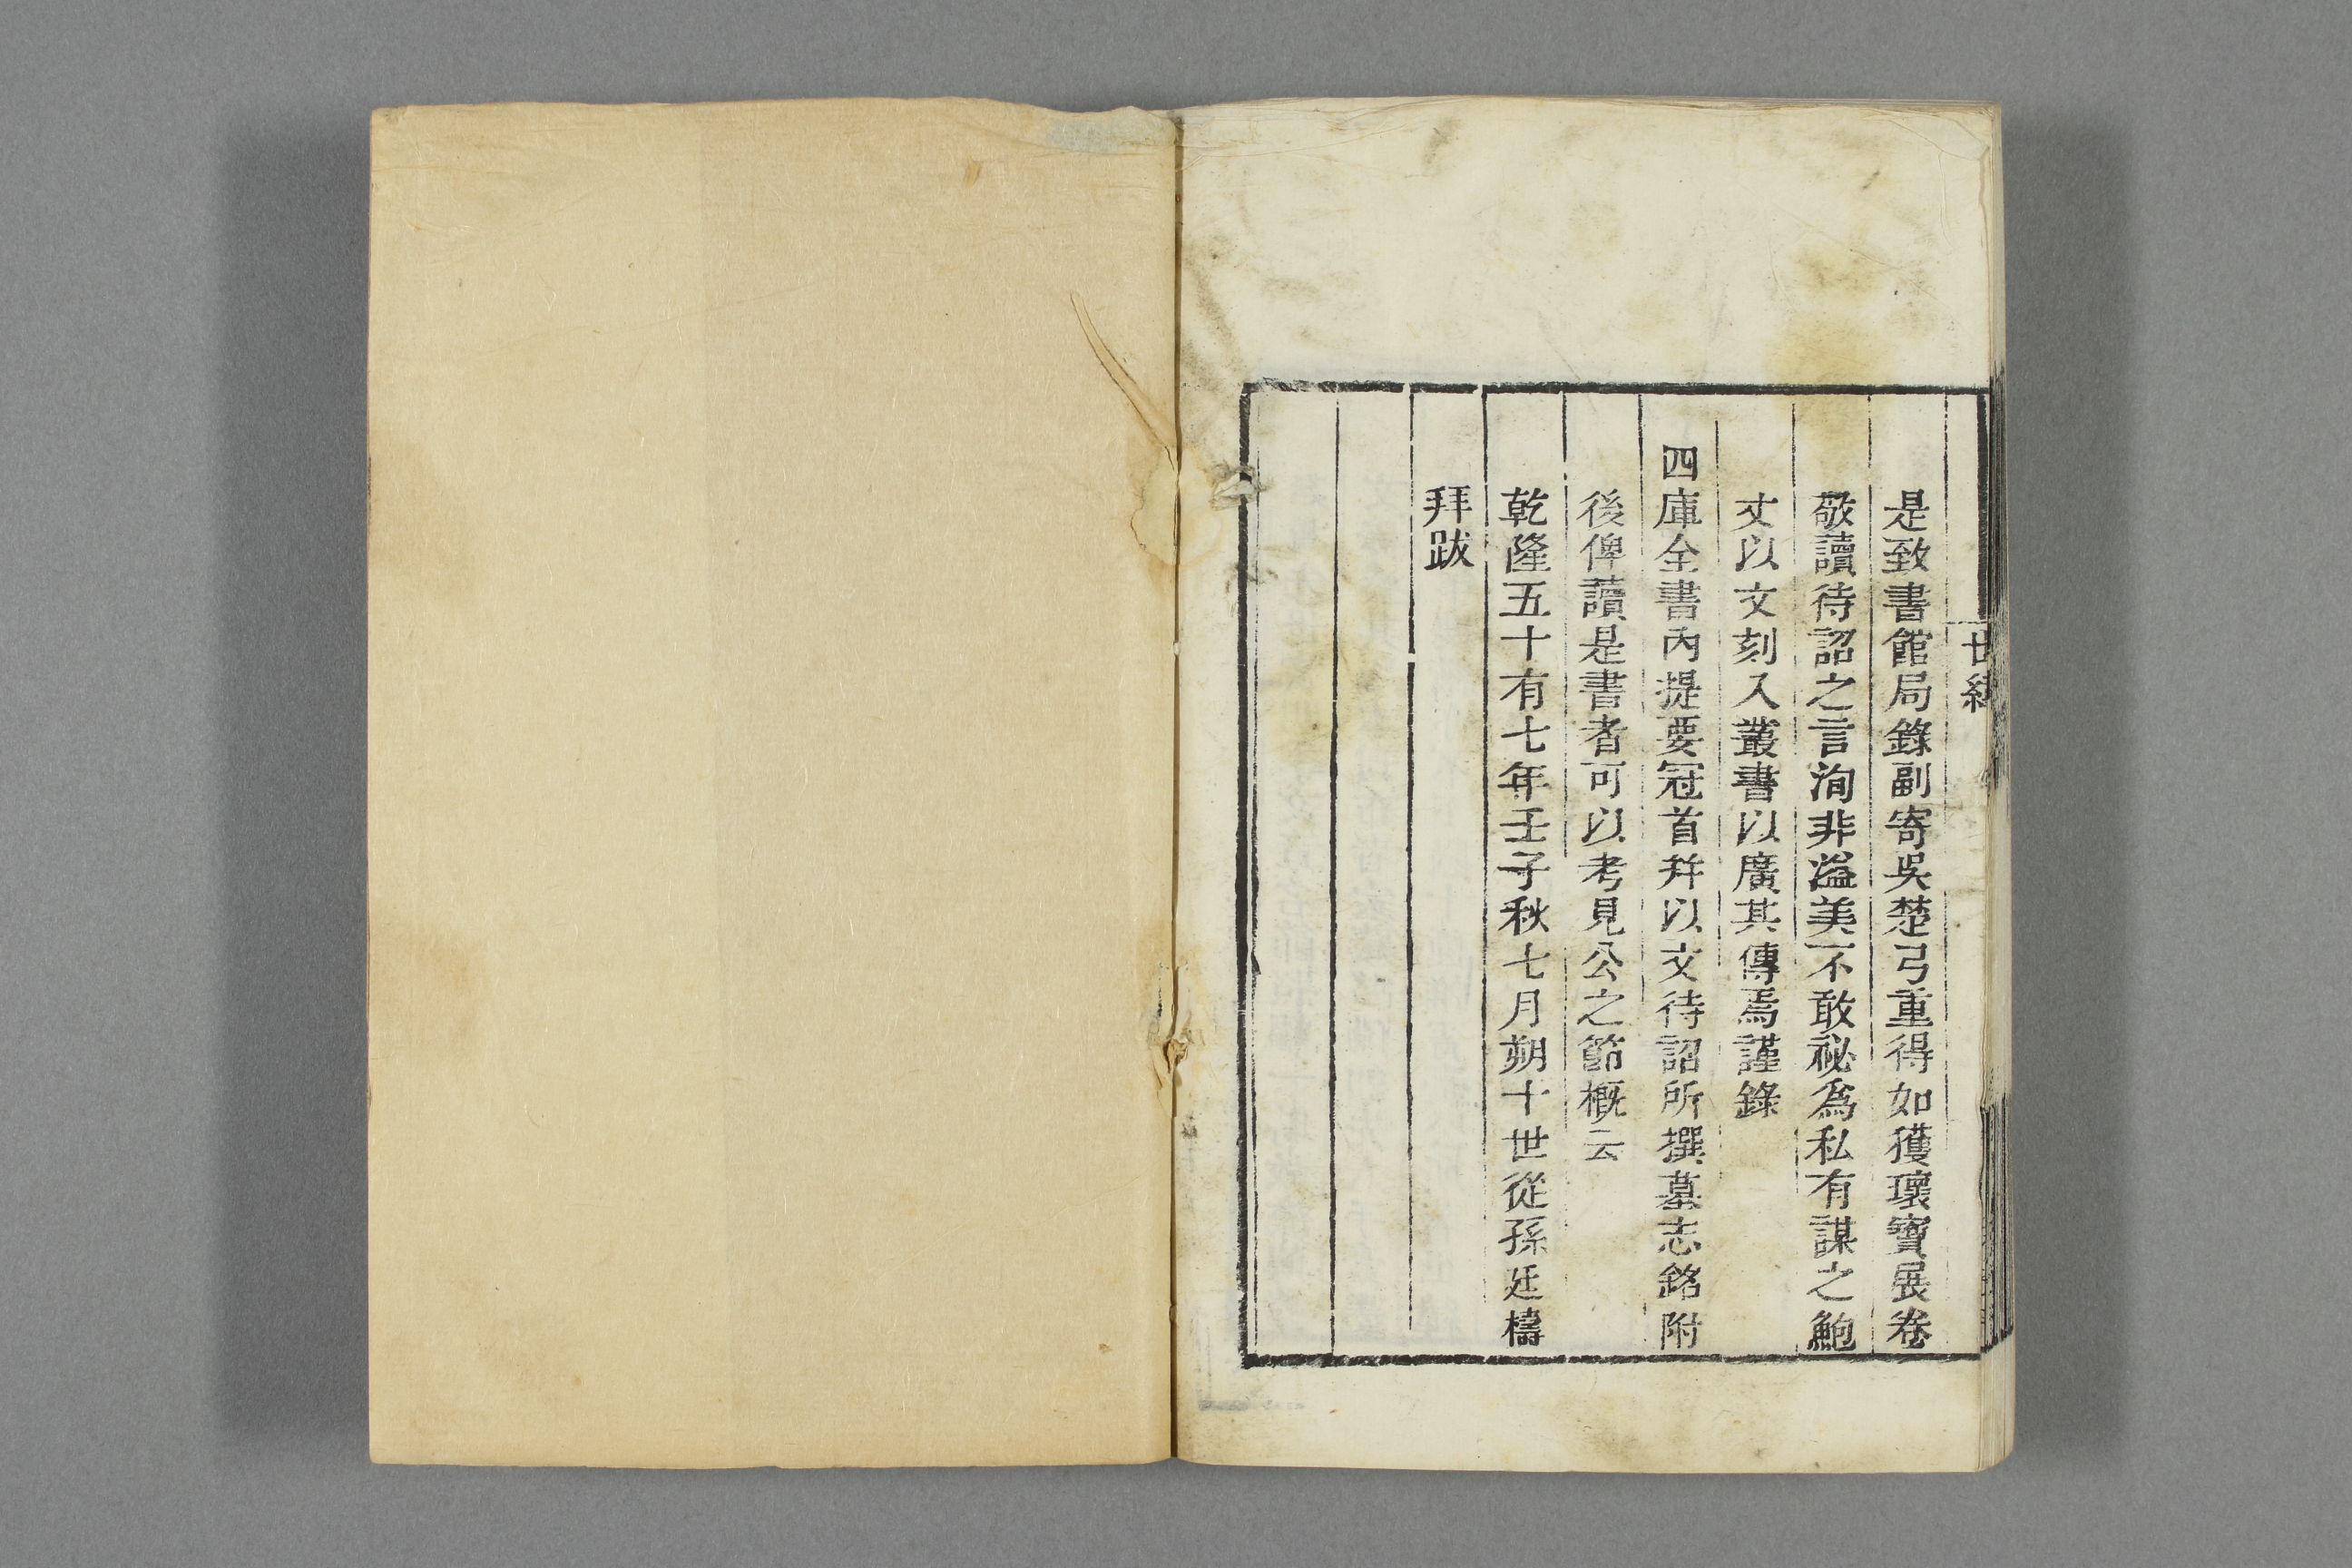 世緯
是致書館局錄副寄吳楚弓重得如獲瓌寶展卷
敬讀待詔之言洵非溢美不敢祕為私有謀之鮑
丈以文刻入叢書以廣其傳焉謹錄
四庫全書內提要冠首幷以文待詔所撰墓志銘附
後俾讀是書者可以考見公之節概云
乾隆五十有七年壬子秋七月朔十世從孫廷檮
拜跋